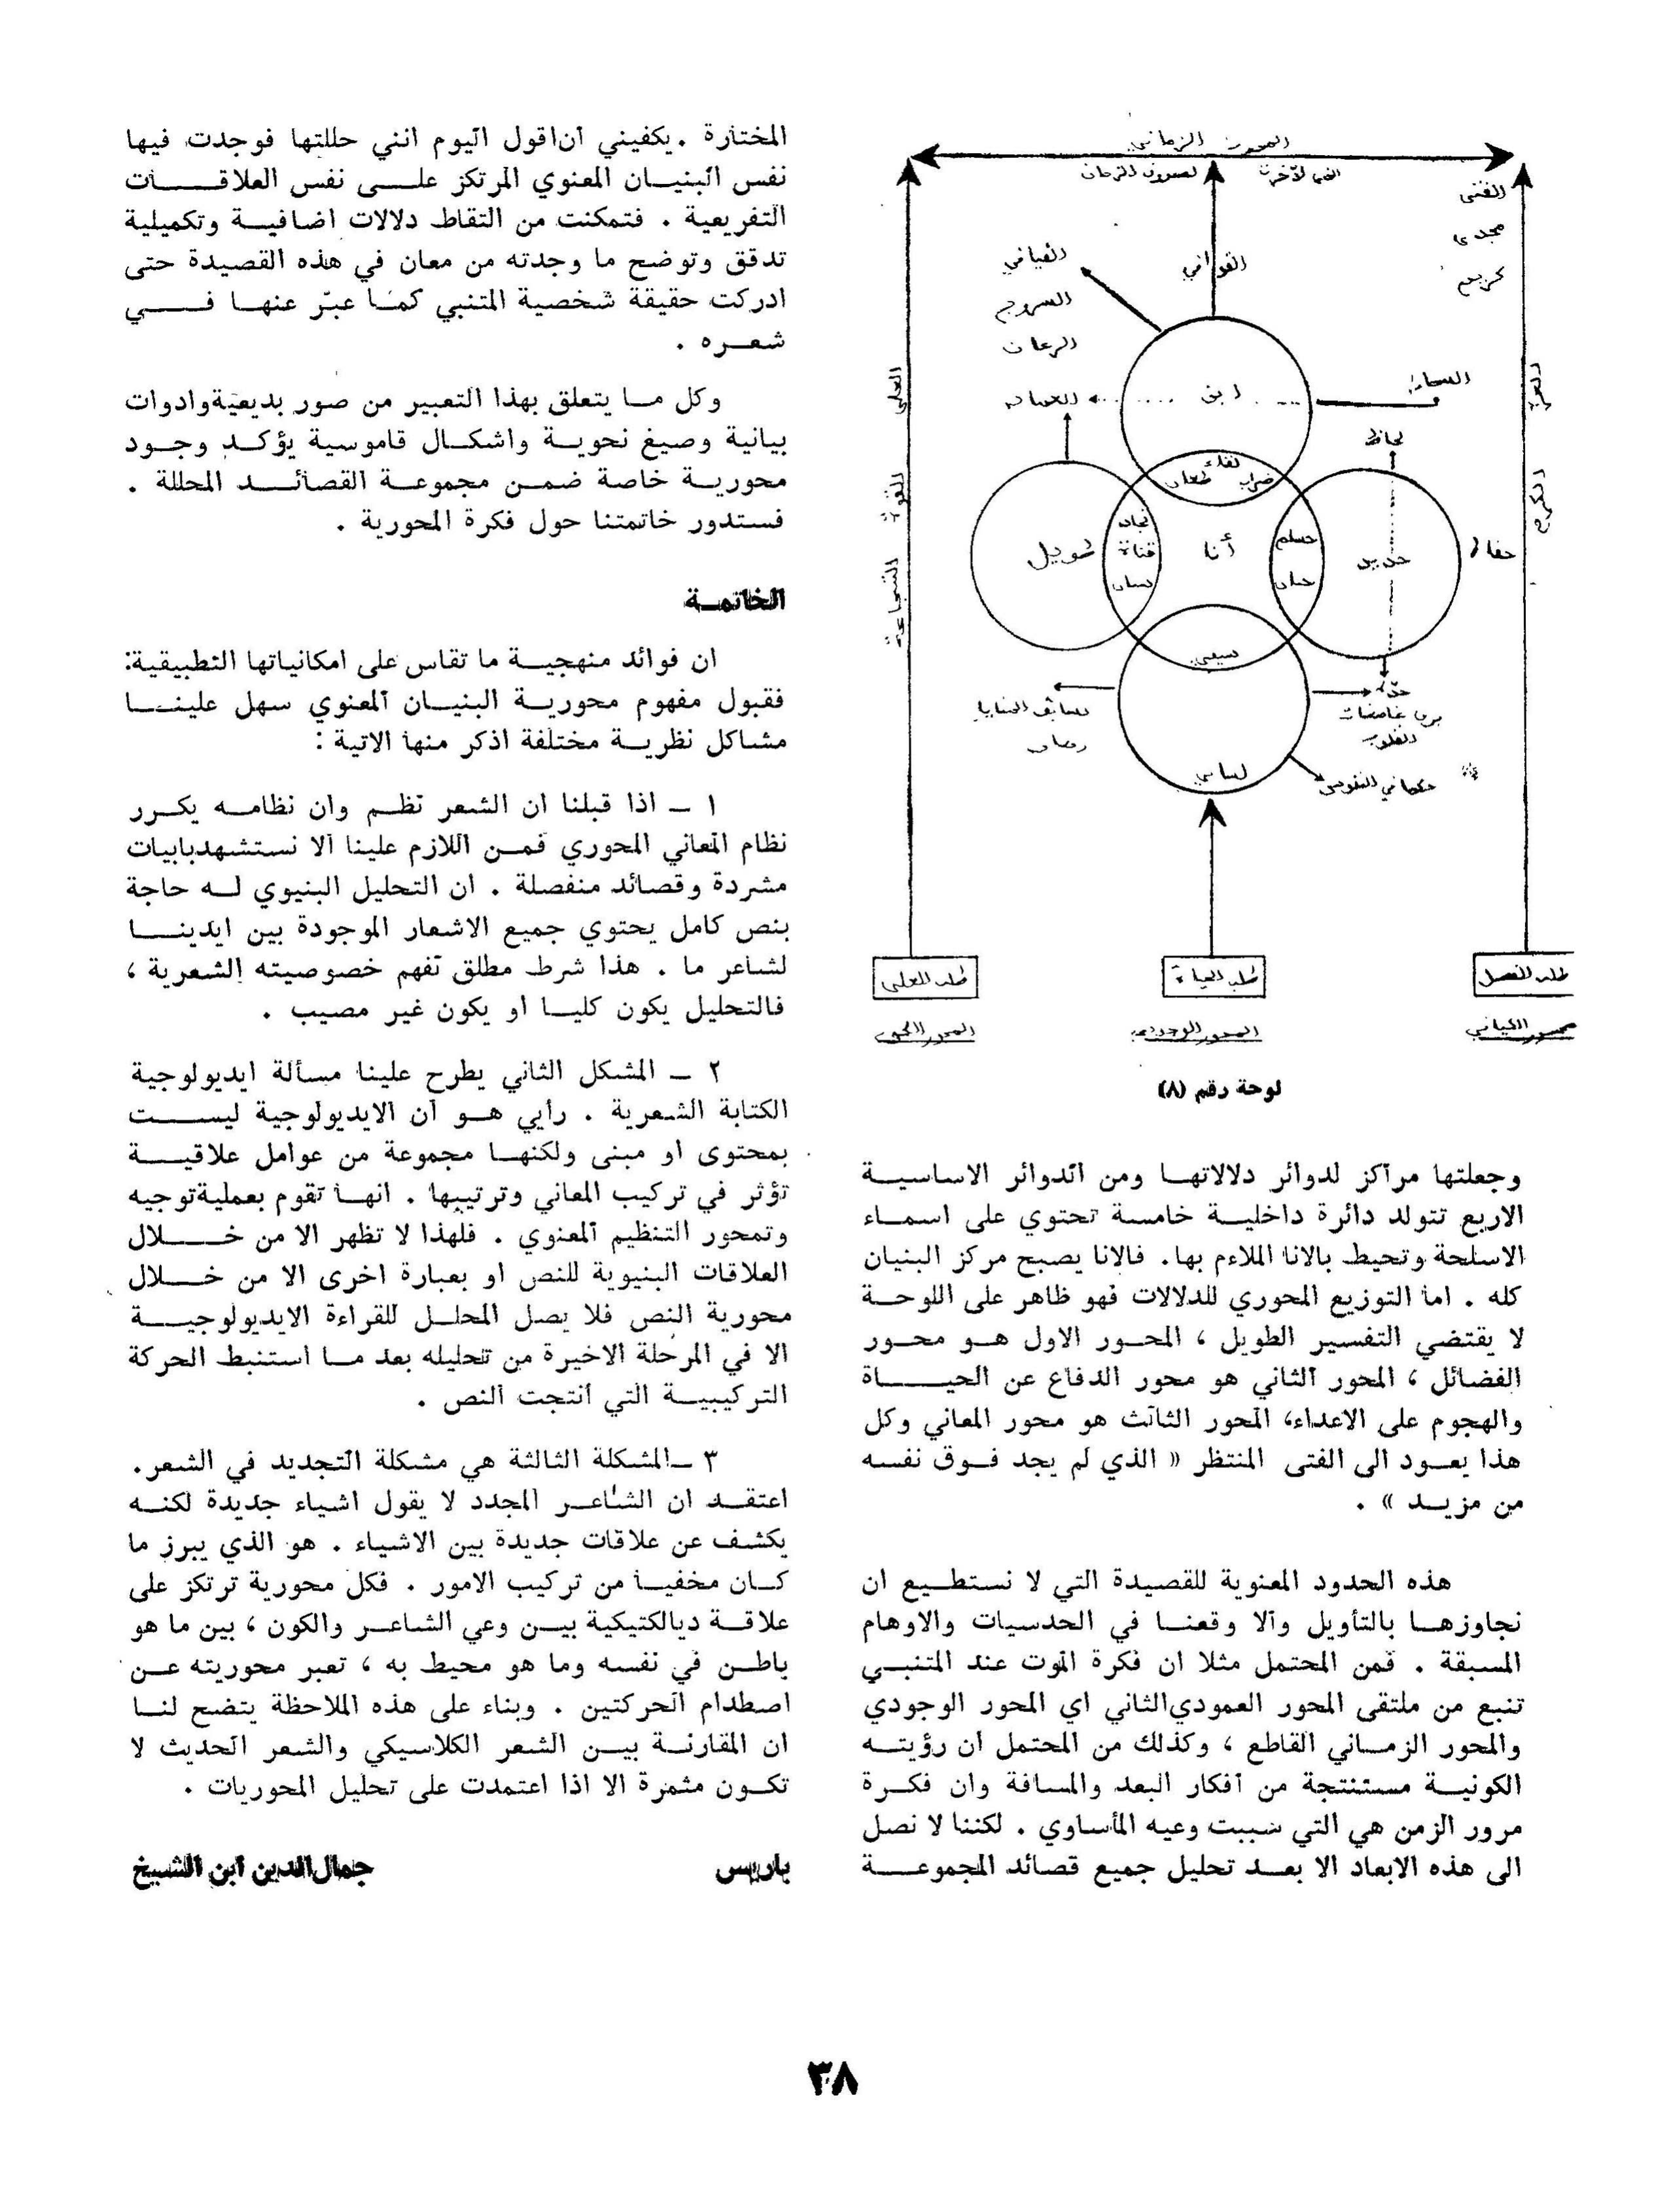 المحور الزماني
لصروف الزمان
الفتى
مجدي
كريم
الفيافي
القوافي
السروج
الرعان
ابن
السخاء
العلى
لحاظ
لقاء
ضراب
طعان
الكرم
القوة
نجاد
قناة
سنان
طويل
أنا
حسام
حديد
حفاظ
الشجاعة
سيفي
يسابق المنايا
يرى غامضات
القلوب
رهان
لساني
حكما في النفوس
طلب الفضل
طلب الحياة
طلب العلى
المحور الكياني
المحور الوجودي
لوحة رقم (٨)
وجعلتها مراكز لدوائر دلالاتهـا ومن الدوائر الاساسيـة
الاربع تتولد دائرة داخليـة خامسة تحتوي على اسمـاء
الاسلحة وتحيط بالانا الملاءم بها. فالانا يصبح مركز البنيان
كله . اما التوزيع المحوري للدلالات فهو ظاهر على اللوحـة
لا يقتضي التفسير الطويل ، المحـور الاول هـو محـور
الفضائل ، المحور الثاني هو محور الدفاع عن الحيــاة
والهجوم على الاعداء، المحور الثالث هو محور المعاني وكل
هذا يعـود الى الفتى المنتظر « الذي لم يجد فـوق نفسه
من مزيـد » .
هذه الحدود المعنوية للقصيدة التي لا نستطـيع ان
نجاوزهـا بالتأويل والا وقعنـا في الحدسيات والاوهام
المسبقة . فمن المحتمل مثلا ان فكرة الموت عند المتنبـي
تنبع من ملتقى المحور العمودي الثاني اي المحور الوجودي
والمحور الزمـاني القاطع ، وكذلك من المحتمل ان رؤيتـه
الكونيـة مستنتجة من افكار البعد والمسافة وان فكـرة
مرور الزمن هي التي سببت وعيه المأساوي . لكننا لا نصل
الى هذه الابعاد الا بعـد تحليل جميع قصائد المجموعـــة
المختارة . يكفيني ان اقول اليوم انني حللتها فوجدت فيها
نفس البنيـان المعنوي المرتكز علـى نفس العلاقــات
التفريعية . فتمكنت من التقاط دلالات اضافيـة وتكميلية
تدقق وتوضح ما وجدته من معان في هذه القصيدة حتى
ادركت حقيقة شخصية المتنبي كمـا عبّر عنهـا فــي
شعـره .
وكل مـا يتعلق بهذا التعبير من صور بديعية وادوات
بيانية وصيغ نحويـة واشكـال قاموسية يؤكـد وجـود
محوريـة خاصة ضمـن مجموعـة القصائـد المحللة .
فستدور خاتمتنا حول فكرة المحورية .
الخاتمـة
ان فوائد منهجيـة ما تقاس على امكانياتها التطبيقية:
فقبول مفهوم محوريـة البنيـان المعنوي سهل علينـا
مشاكل نظريـة مختلفة اذكر منها الاتية :
١ ـ اذا قبلنا ان الشعر نظـم وان نظامـه يكـرر
نظام المعاني المحوري فمـن اللازم علينا الا نستشهد بابيات
مشردة وقصائد منفصلة . ان التحليل البنيوي لـه حاجة
بنص كامل يحتوي جميع الاشعار الموجودة بين ايدينـا
لشاعر ما . هذا شرط مطلق تفهم خصوصيته الشعرية ،
فالتحليل يكون كليـا او يكون غير مصيب .
٢ ـ المشكل الثاني يطرح علينا مسألة ايديولوجية
الكتابة الشعرية . رأيي هـو ان الايديولوجية ليســت
بمحتوى او مبنى ولكنهـا مجموعة من عوامل علاقيـة
تؤثر في تركيب المعاني وترتيبها . انهـا تقوم بعملية توجيه
وتمحور التنظيم المعنوي . فلهذا لا تظهر الا من خــلال
العلاقات البنيوية للنص او بعبارة اخرى الا من خــلال
محورية النص فلا يصل المحلـل للقراءة الايديولوجيـة
الا في المرحلة الاخيرة من تحليله بعد مـا استنبط الحركة
التركيبيـة التي انتجت النص .
٣ ـ المشكلة الثالثة هي مشكلة التجديد في الشعر.
اعتقـد ان الشاعـر المجدد لا يقول اشياء جديدة لكنـه
يكشف عن علاقات جديدة بين الاشياء . هو الذي يبرز ما
كـان مخفيـا من تركيب الامور . فكل محورية ترتكز على
علاقـة ديالكتيكية بيـن وعي الشاعـر والكون ، بين ما هو
باطـن في نفسه وما هو محيط به ، تعبر محوريته عـن
اصطدام الحركتين . وبناء على هذه الملاحظة يتضح لنـا
ان المقارنـة بيـن الشعر الكلاسيكي والشعر الحديث لا
تكـون مثمرة الا اذا اعتمدت على تحليل المحوريات .
باريس جمال الدين ابن الشيخ
٣٨